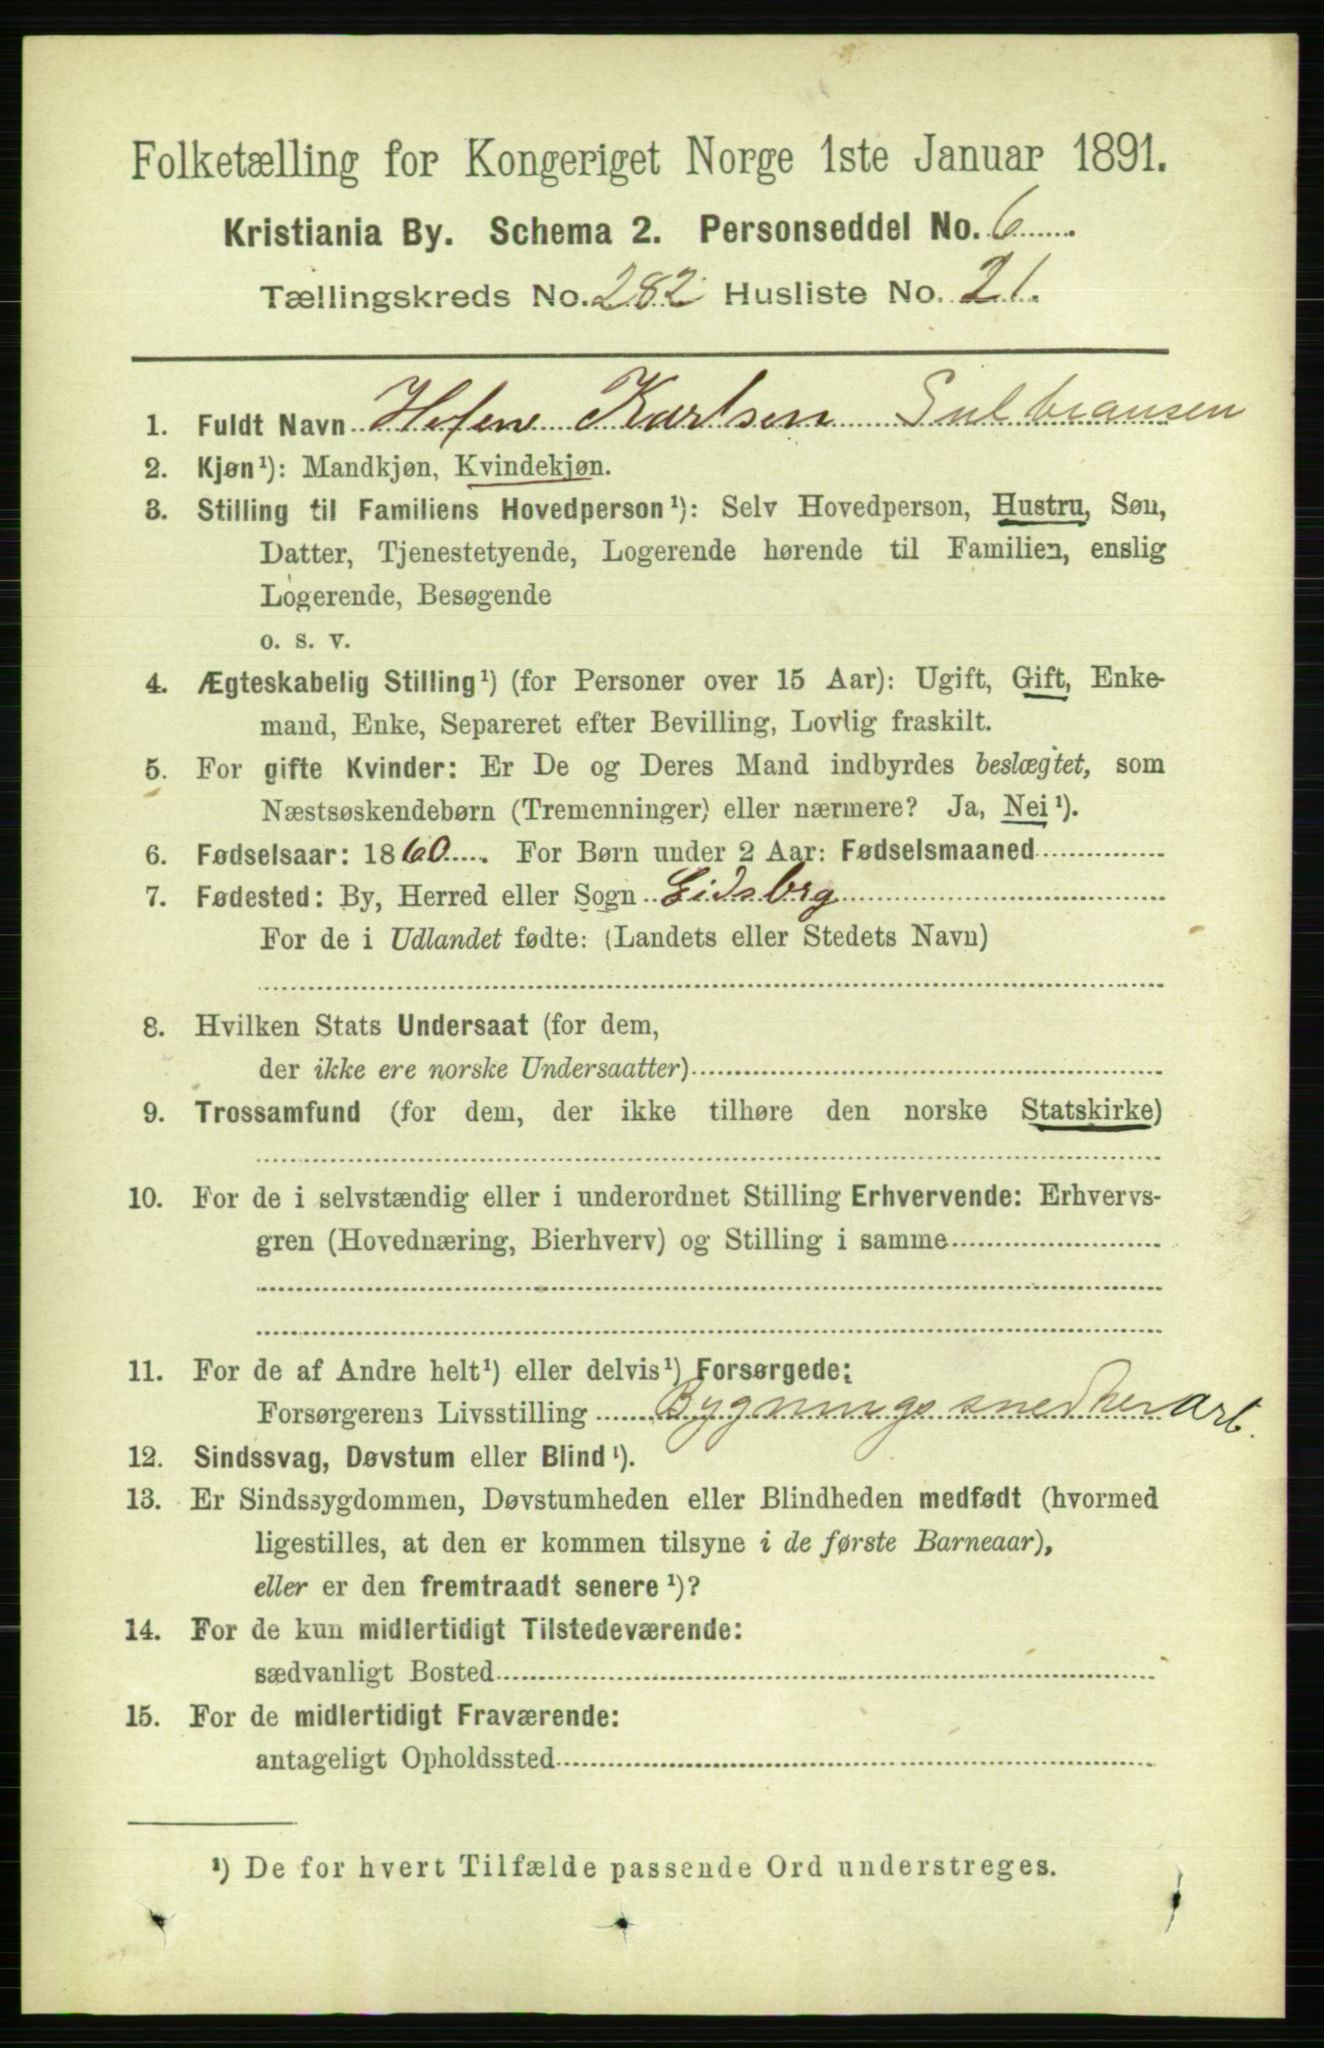 Folketælling for Kongeriget Norge 1ste Januar 1891.
Kristiania By. Schema 2. Personseddel No. 6
Tællingskreds No. 282 Husliste No. 21.
1. Fuldt Navn Helene Karlsen Gulbransen
2. Kjøn¹): Mandkjøn, Kvindekjøn.
3. Stilling til Familiens Hovedperson¹): Selv Hovedperson, Hustru, Søn,
Datter, Tjenestetyende, Logerende hørende til Familien, enslig
Logerende, Besøgende
o. s. v.
4. Ægteskabelig Stilling¹) (for Personer over 15 Aar): Ugift, Gift, Enke-
mand, Enke, Separeret efter Bevilling, Lovlig fraskilt.
5. For gifte Kvinder: Er De og Deres Mand indbyrdes beslægtet, som
Næstsøskendebørn (Tremenninger) eller nærmere? Ja, Nei¹).
6. Fødselsaar: 1860. For Børn under 2 Aar: Fødselsmaaned
7. Fødested: By, Herred eller Sogn Eidsberg
For de i Udlandet fødte: (Landets eller Stedets Navn)
8. Hvilken Stats Undersaat (for dem,
der ikke ere norske Undersaatter)
9. Trossamfund (for dem, der ikke tilhøre den norske Statskirke)
10. For de i selvstændig eller i underordnet Stilling Erhvervende: Erhvervs-
gren (Hovednæring, Bierhverv) og Stilling i samme
11. For de af Andre helt¹) eller delvis¹) Forsørgede:
Forsørgerens Livsstilling Bygningssnedkerarb.
12. Sindssvag, Døvstum eller Blind¹).
13. Er Sindssygdommen, Døvstumheden eller Blindheden medfødt (hvormed
ligestilles, at den er kommen tilsyne i de første Barneaar),
eller er den fremtraadt senere¹)?
14. For de kun midlertidigt Tilstedeværende:
sædvanligt Bosted
15. For de midlertidigt Fraværende:
antageligt Opholdssted
¹) De for hvert Tilfælde passende Ord understreges.